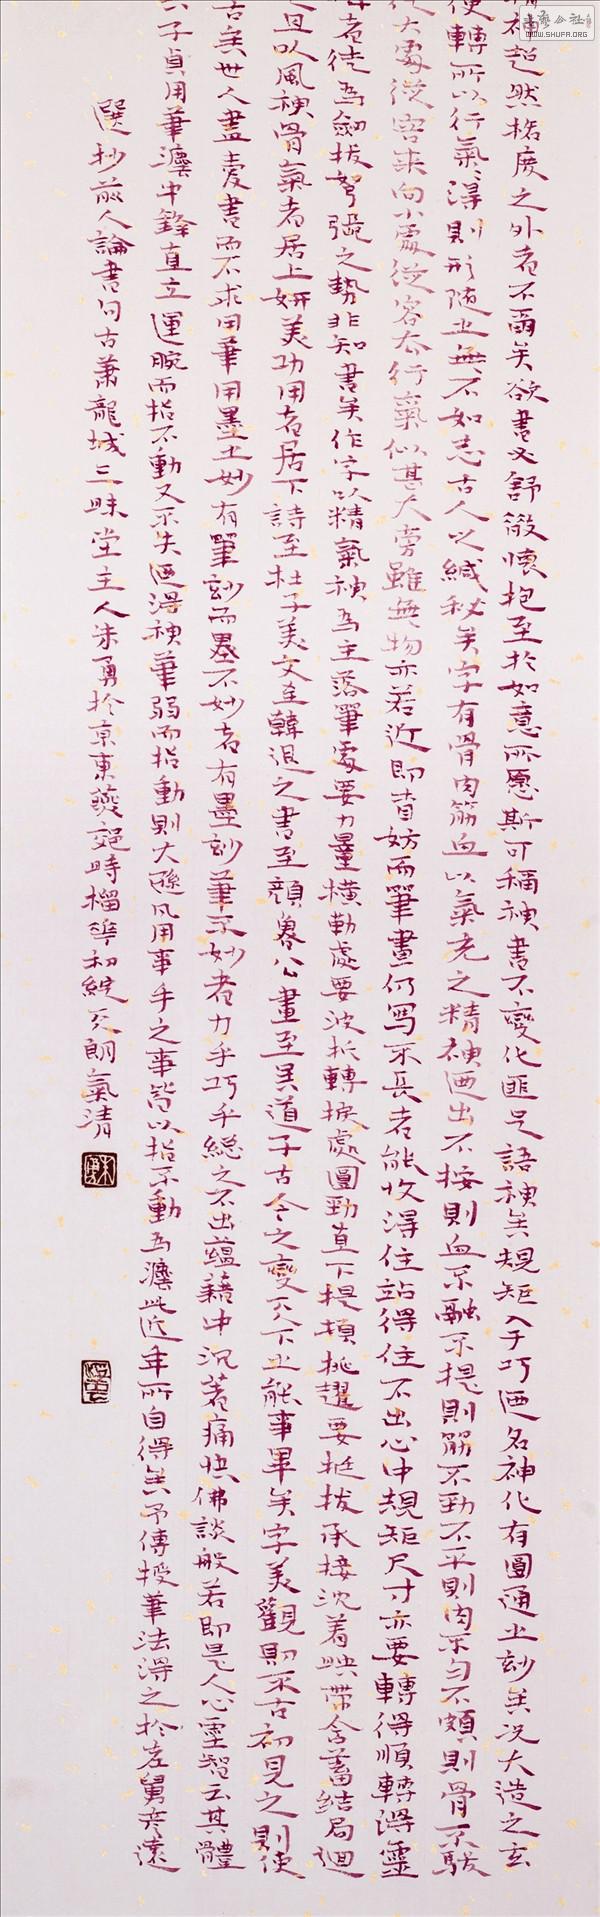 神超然楷度之外者不爾矣欲書必舒散懷抱至於如意所愿斯可稱神書不變化匪足語神矣規矩入乎巧迺名神化有圓通之妙矣況大造之玄
使轉所以行氣氣得則形隨之無不如志古人之緘秘矣字有骨肉筋血以氣充之精神迺出不按則血不融不提則筋不勁不平則肉不勻不頗則骨不駿
從大處從容來向小處從容去行氣似甚大旁雖無物亦若近即有妨而筆畫仍寫不長者能收得住站得住不出心中規矩尺寸亦要轉得順轉得靈
者徒為劍拔弩張之勢非知書矣作字以精氣神為主落筆處要力量橫勒處要波折轉捩處圓勁直下提頓挑趯要挺拔承接沈着映帶含蓄結局迴
且以風神骨氣者居上妍美功用者居下詩至杜子美文至韓退之書至顏魯公畫至吳道子古今之變天下之能事畢矣字美觀則不古初見之則使
古矣世人盡愛書而不求用筆用墨之妙有筆妙而墨不妙者有墨妙筆不妙者力乎巧乎總之不出蘊藉中沉著痛快佛談般若即是人心靈智云其體
子貞用筆瀍中鋒直立運腕而指不動又不失迺得神筆弱而指動則大隧風用事手之事皆以指不動為瀍此近年所自得矣予傳授筆法得之於左舅彦遠
選抄前人論書句古蕭龍城三昧堂主人朱勇於京東燕郊時榴花初綻天朗氣清
朱勇
书艺公社
WWW.SHUFA.ORG